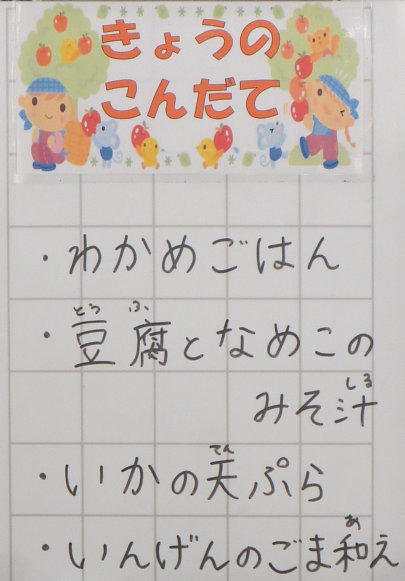 きょうの
こんだて
・わかめごはん
とうふ
・豆腐となめこの
しる
みそ汁
てん
・いかの天ぷら
あ
・いんげんのごま和え